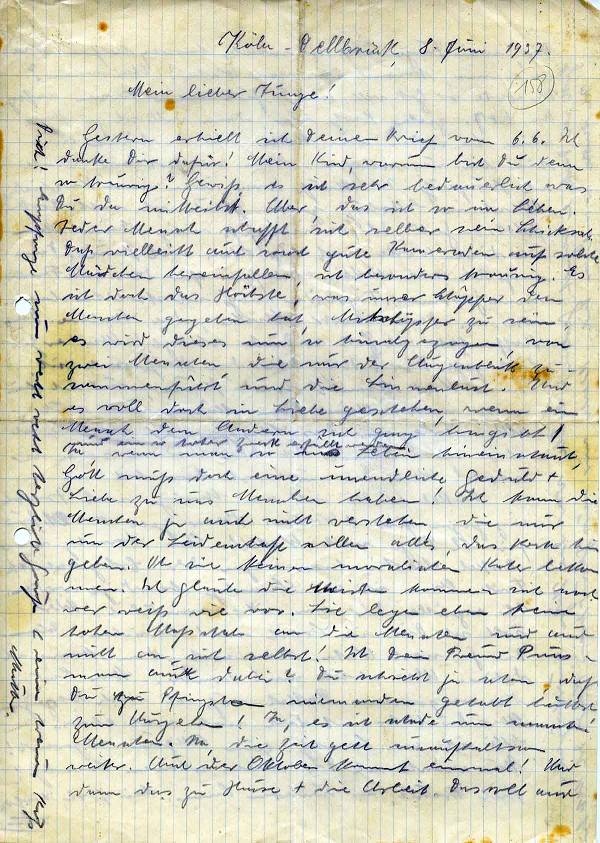 Köln-Dellbrück, 8. Juni 1937.
158
Mein lieber Junge!
Gestern erhielt ich Deinen Brief vom 6.6. Ich
danke Dir dafür! Mein Kind, warum bist Du denn
so traurig? Gewiß, es ist sehr bedauerlich was
Du da mitteilst. Aber, das ist so im Leben.
Jeder Mensch schafft sich selber sein Schicksal.
Daß vielleicht auch sonst gute Kameraden auf solche
Mädchen hereinfallen, ist besonders traurig. Es
ist doch das Höchste, was unser Schöpfer den
Menschen gegeben hat, Mitschöpfer zu sein,
es wird dieses nun so hinabgezogen von
zwei Menschen die nur der Augenblick zu-
sammenführt und die Sinnenlust. Und
es soll doch in Liebe geschehen, wenn ein
Mensch dem Andern sich ganz hingibt!
und ein so hoher Zweck erfüllt werden
Ja, wenn man so ins Leben hineinschaut,
Gott muß doch eine unendliche Geduld +
Liebe zu uns Menschen haben! Ich kann die
Menschen ja auch nicht verstehen, die nur
um der Leidenschaft willen alles, das hin
geben. Ob sie keinen moralischen Kater bekom
men. Ich glaube die Meisten kommen sich noch
wer weiß wie vor. Sie legen eben keine
hohen Maßstab an die Menschen und auch
nicht an sich selbst! Ist Dein Freund
mann auch dabei? Du schriebst ja schon daß
Du zu Pfingsten niemanden gehabt hättest
zum Ja, es ist schade um manche
Menschen. Na, die Zeit geht unaufhaltsam
weiter. Auch der Oktober kommt einmal! Und
dann das zu Hause + die Arbeit. Das soll auch
nun recht recht herzliche Grüße + einen Kuß
Mutter.